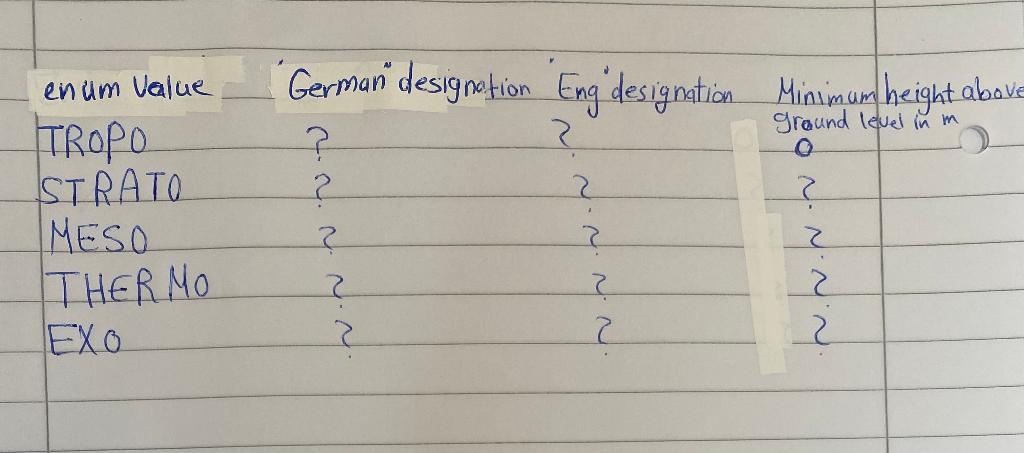 enum Value "German" designation "Eng" designation Minimum height above
ground level in m
TROPO ? ? 0
STRATO ? ? ?
MESO ? ? ?
THERMO ? ? ?
EXO ? ? ?